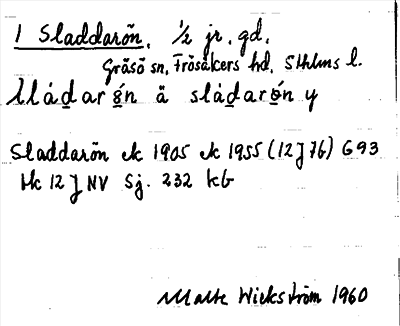 1 Sladdarön, ½ jr, gd,
Gräsö sn, Frösåkers hd, Sthlms l.
slȧdarǫ́n ä slȧdarǫ́n y
Sladdarön ek 1905 ek 1955 (12J 7G) G93
Hk 12J NV Sj. 232 kG
Malte Wickström 1960